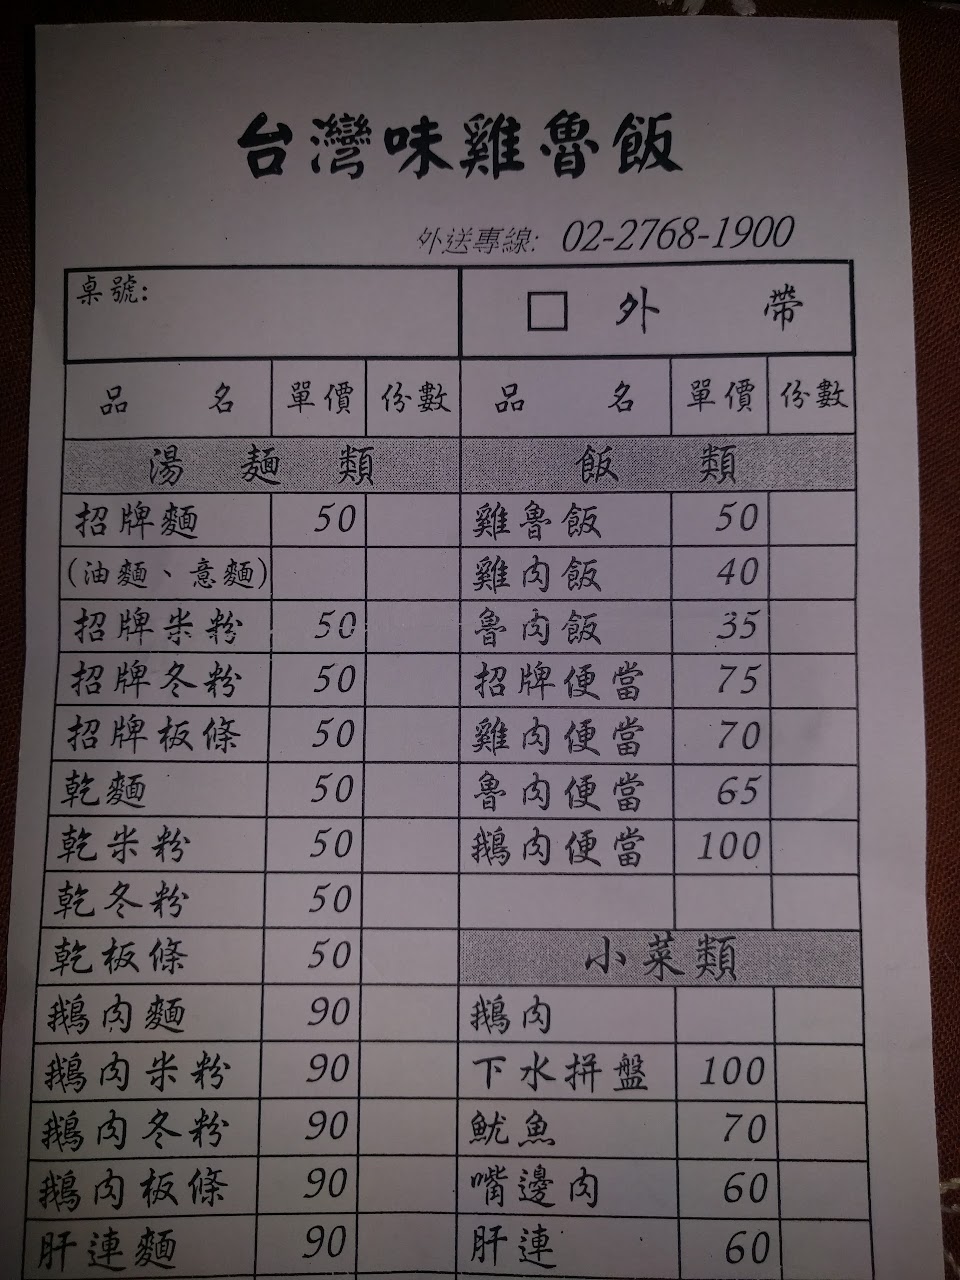 台灣味雞魯飯
外送專線: 02-2768-1900
桌號: □ 外 帶
品 名 單價 份數 品 名 單價 份數
湯 麵 類 飯 類
招牌麵 50 雞魯飯 50
(油麵、意麵) 雞肉飯 40
招牌米粉 50 魯肉飯 35
招牌冬粉 50 招牌便當 75
招牌板條 50 雞肉便當 70
乾麵 50 魯肉便當 65
乾米粉 50 鵝肉便當 100
乾冬粉 50
乾板條 50 小菜類
鵝肉麵 90 鵝肉
鵝肉米粉 90 下水拼盤 100
鵝肉冬粉 90 魷魚 70
鵝肉板條 90 嘴邊肉 60
肝連麵 90 肝連 60